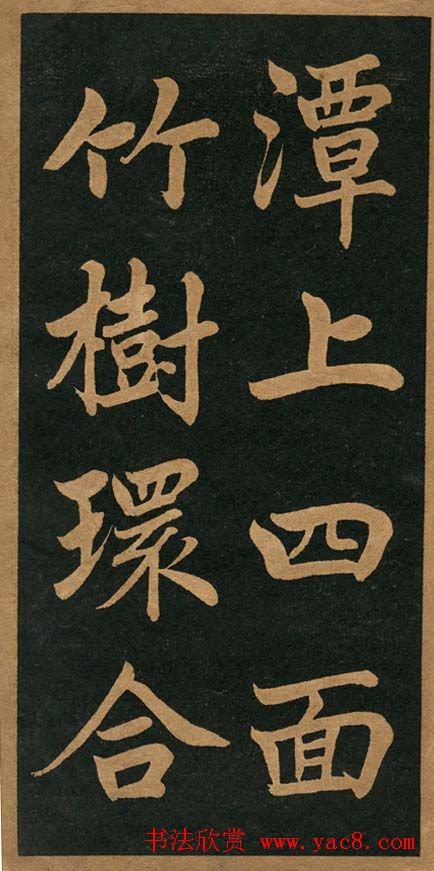 潭上四面
竹樹環合
书法欣赏 www.yac8.com